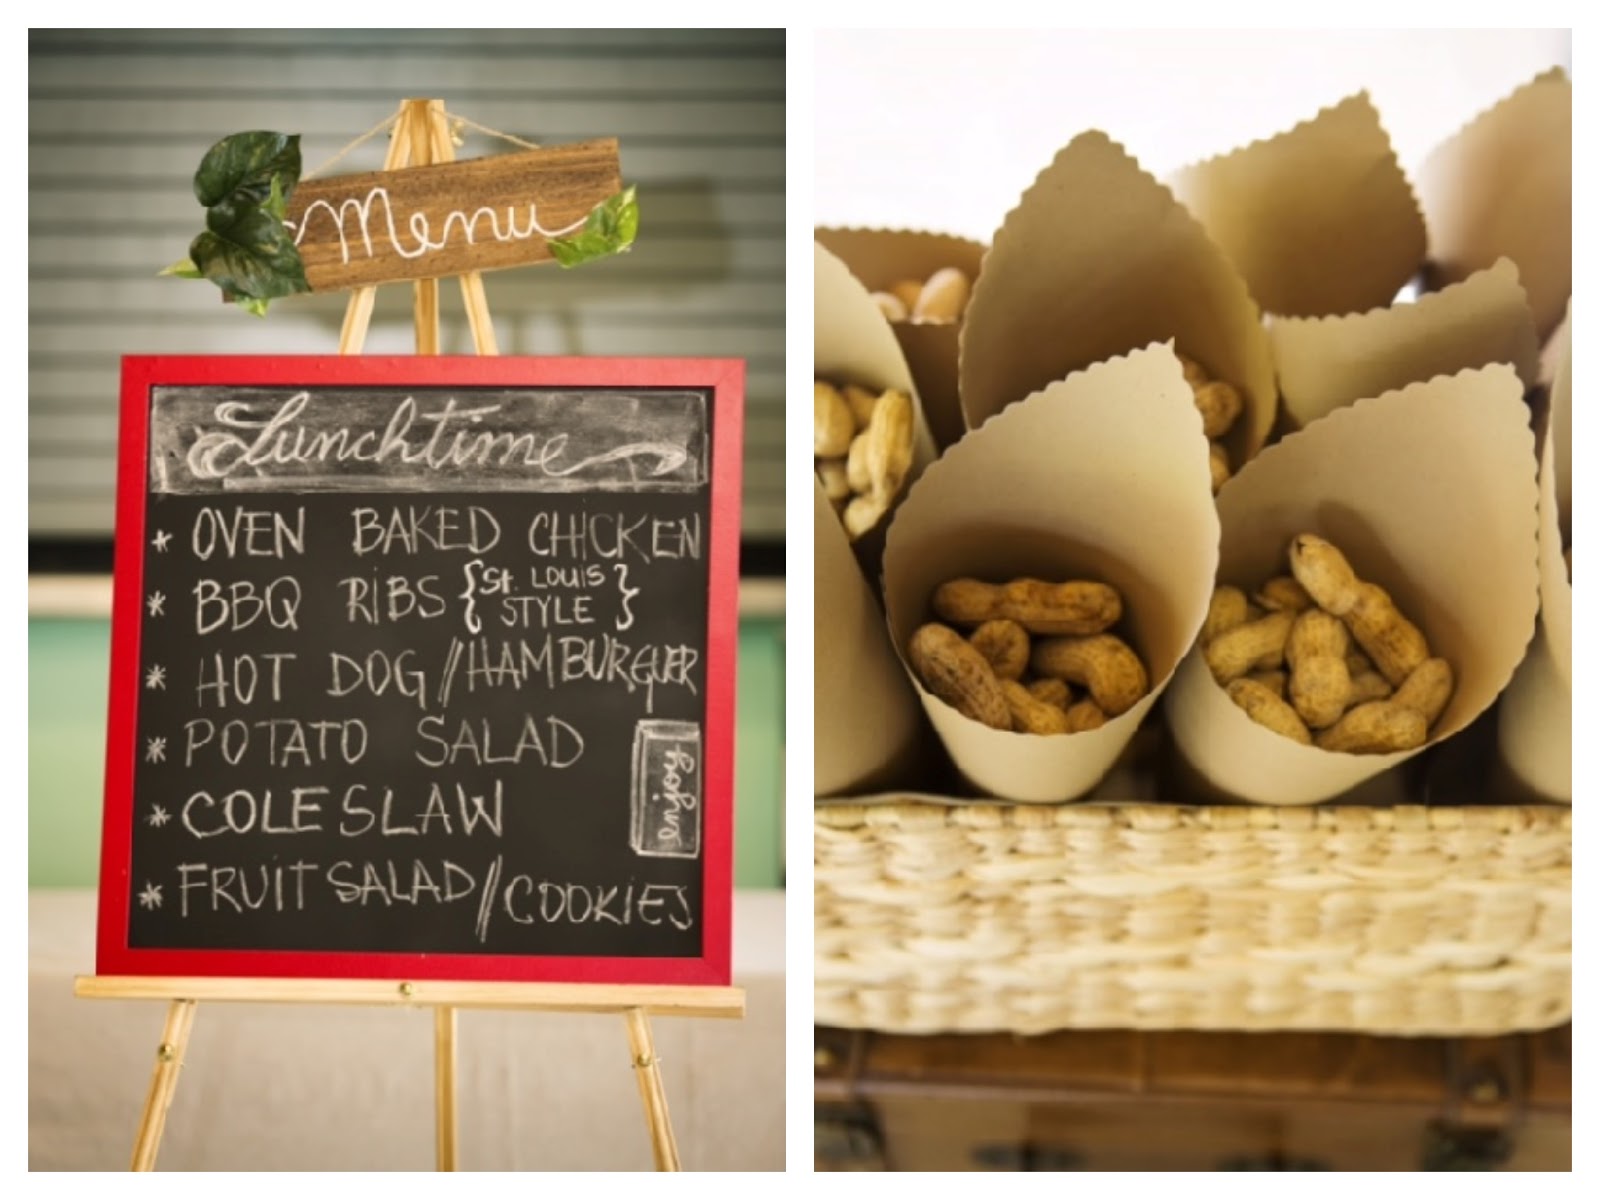 Menu
Lunchtime
* OVEN BAKED CHICKEN
* BBQ RIBS {St. LOUIS STYLE}
* HOT DOG // HAMBURGUER
* POTATO SALAD
* COLE SLAW
enjoy
* FRUIT SALAD // COOKIES